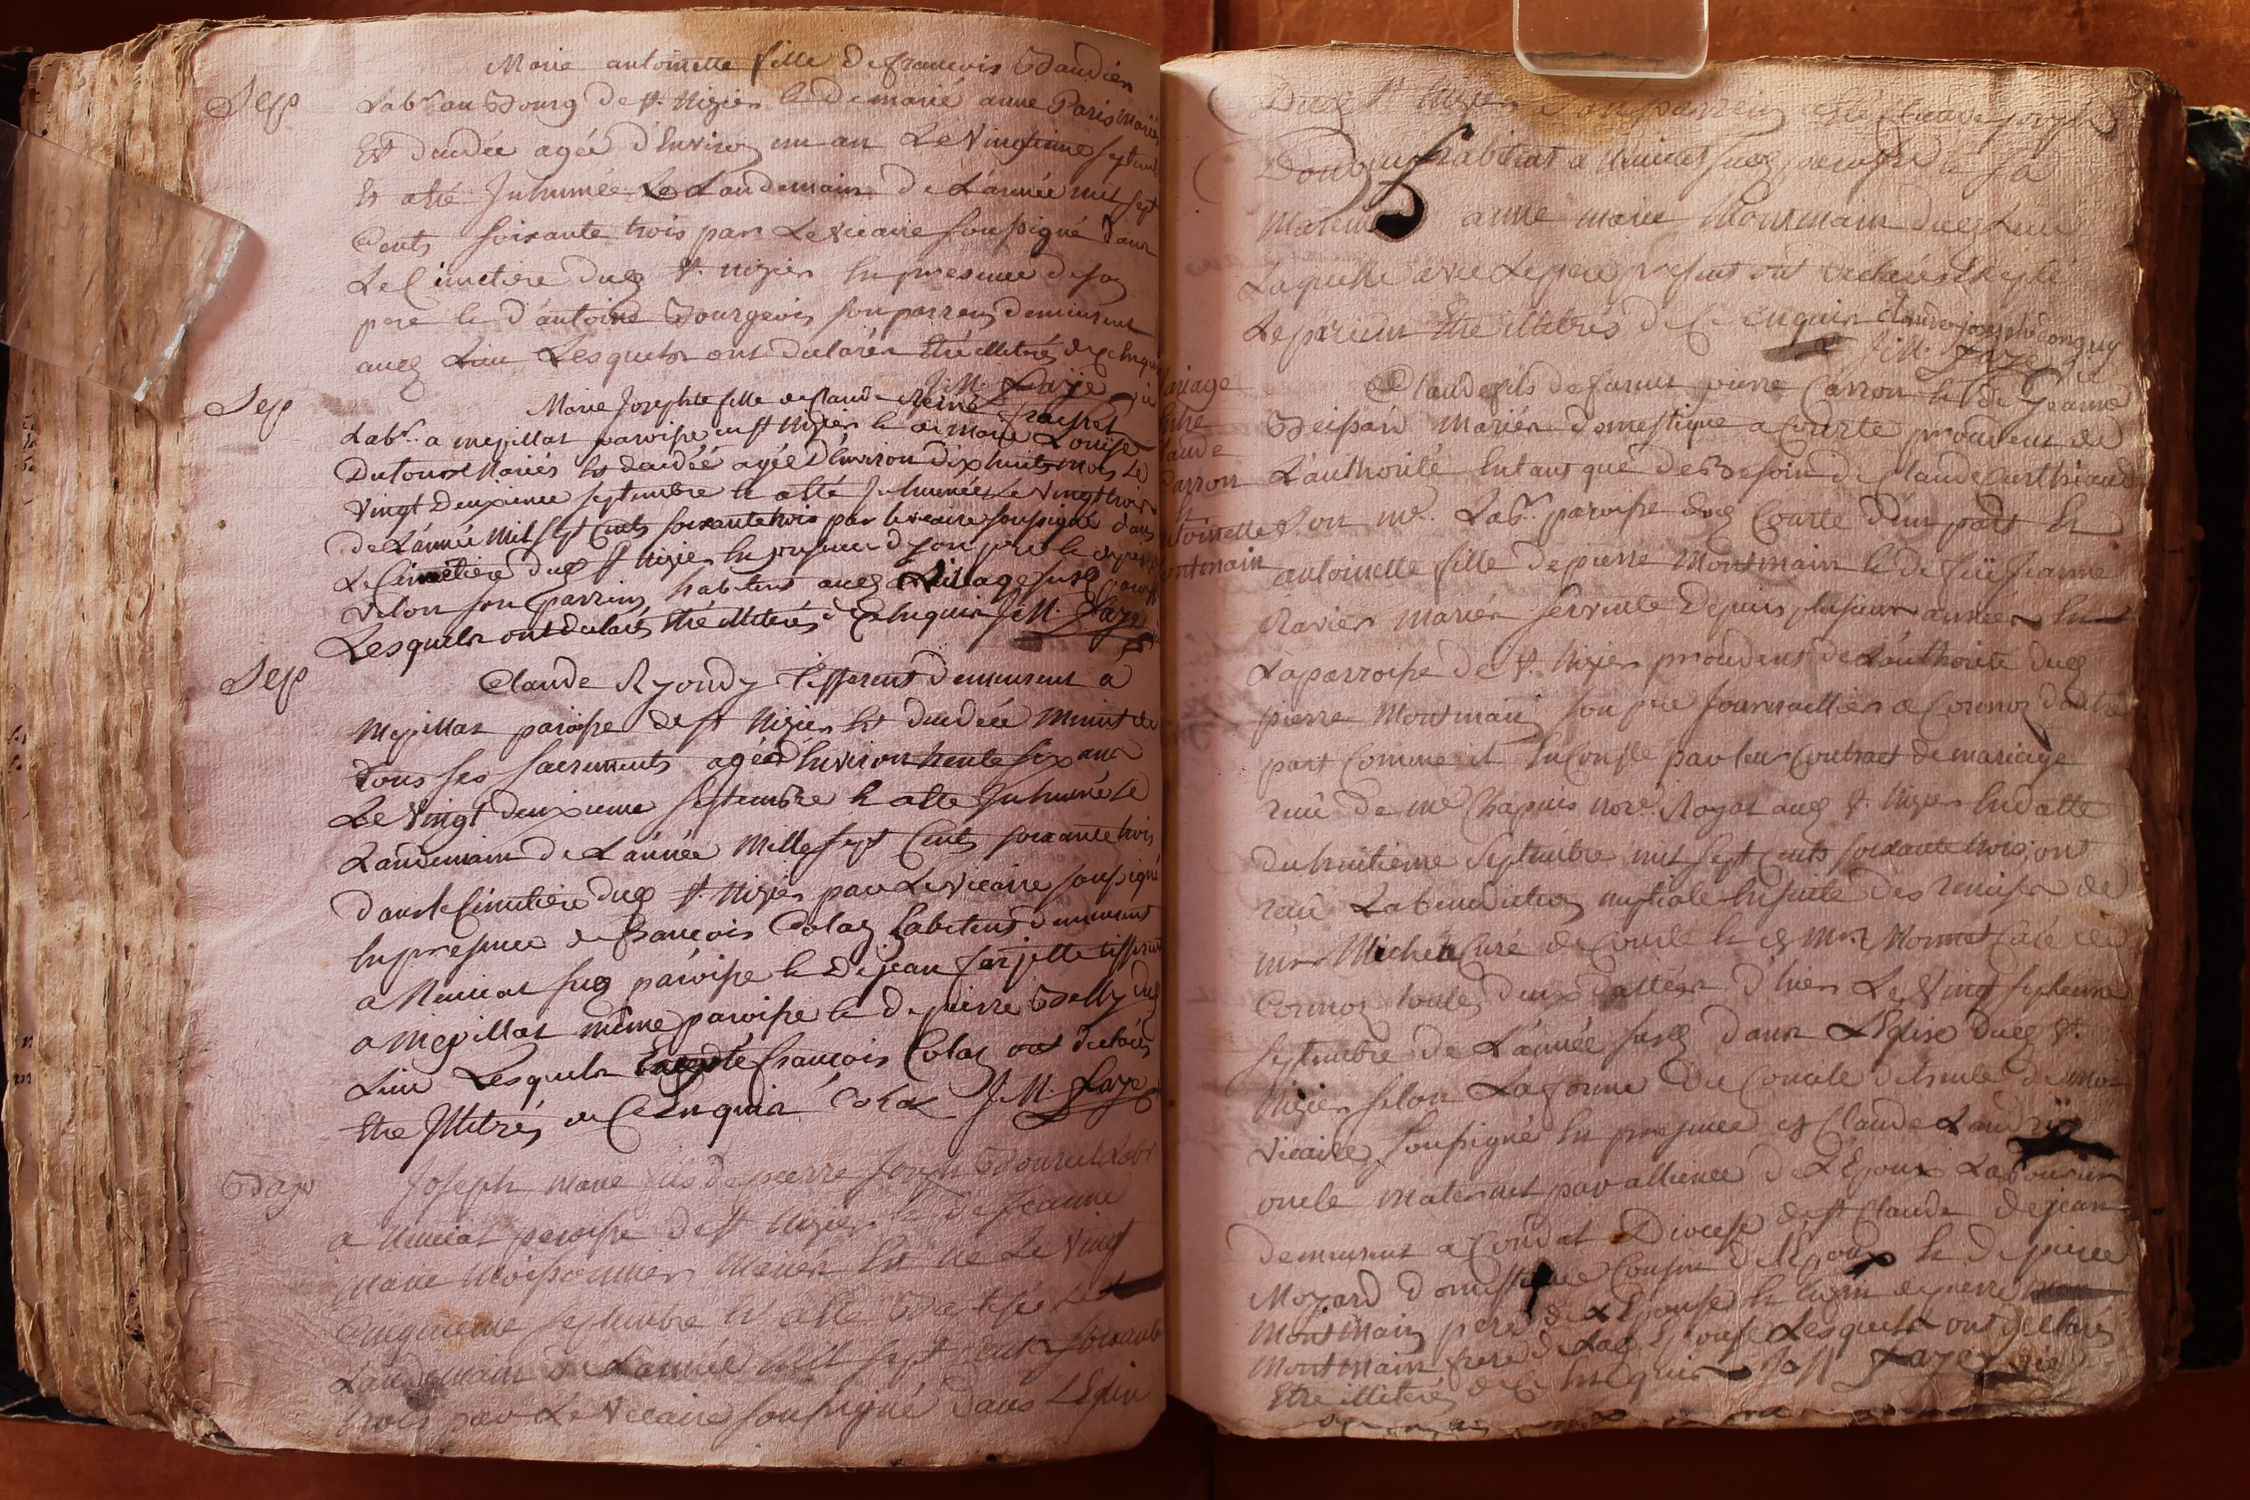 Marie antoinette fille de francois Baudier
Sep
Labr. au Bourg de st. Nizier et de marie anne Paris mariés
Est décédée agée d'Environ un an Le Vingtième septembre
Et a été Inhumée Le Landemain de L'année mil sept
Cents soixante trois par Le vicaire soussigné dans
Le Cimetiere dud st. Nizier En presence de son
pere et d'antoine Bourgeois son parrein demeurent
aud Lieu Lesquels ont declarés être illitrés de ce Enquis
J.M. Faye
Sep
Marie Josephte fille de Claude
Labr. a mepillat paroisse du st Nizier et de Marie Louise
Dutour Mariés Est décédée agée d'Environ dix huit mois Le
Vingt Deuxieme septembre et a été Inhumée Le Vingt trois
de L'année Mil sept Cents soixante trois par le vicaire soussigné dans
Le Cimetiere dud st Nizier En presence de son pere et de
son parrein habitent aud Village susd
Lesquels ont declarés être illitrés de ce Enquis J.M. Faye
Sep
Claude Ryondy Tisserent demeurent a
Mepillat paroisse de st Nizier Est décédée Munit de
Tous ses sacrements agée d'Environ trente six ans
Le Vingt deuxieme septembre et a été Inhumé Le
Landemain de L'année Mille sept Cents soixante trois
dans le Cimetiere dud st. Nizier par Le vicaire soussigné
En presence de francois Colas habitent demeurent
a susd paroisse et de jean farjette tisserent
a Mepillat même paroisse et de pierre Belly dud
Lieu Lesquels Excepté francois Colas ont declarés
être Illitrés de Ce Enquis Colas J.M. Faye
Joseph Marie fils de pierre Joseph Labr
a paroisse de st Nizier et de Jeanne
Marie Moissonnier Mariés Est né Le Vingt
Cinquieme septembre Et a été Baptisé Le
Landemain de L'année Mil sept Cents soixante
trois par Le Vicaire soussigné dans L'Eglise
Dud st Nizier son parrein a été Claude joseph
Donguy habitent a susd paroisse et sa
Mareine anne marie Montmain dud Lieu
Laquelle avec Le pere present ont declarés
Le parein être illitrés de Ce Enquis Claude joseph donguy
J.M. Faye
Mariage
Claude fils de pierre Carron et de Jeanne
Mariés domestique a Courte procedent de
Carron
L'authorité En tant que de Besoin de Claude
son me. Labr. paroisse dud Courte d'un part Et
antoinette fille de pierre Montmain et de füe Jeanne
Montmain
Ravier Mariés servente depuis plusieurs années En
La parroisse de st. Nizier procedent de L'authorité dud
pierre Montmain son pere Journaillier a Cormoz d'autre
part Comme il En Conste par leur Contract de mariage
reçu de me Chapuis nore. Royal aud st. Nizier En datte
du huitieme Septembre mil sept Cents soixante trois ont
reçu La benediction nuptiale En suite des remises de
mrs Michel Curé de Courte et de Mr. Monnet Curé de
Cormoz toutes deux dattées d'hier Le Vingt septieme
septembre de L'année susd dans L'Eglise dud st.
Nizier selon La forme du Concile de trente de moi
vicaire soussigné En presence de Claude
oncle Maternel par allience de L'Epoux Laboureur
demeurent a Condal Diocese de st Claude de jean
Moyard domestique Cousin de L'Epoux et de pierre
Montmain pere de L'Epouse et Enfin de pierre
Montmain frere de Lad Epouse Lesquels ont declarés
Etre illitrés de Ce Enquis J.M. Faye vic